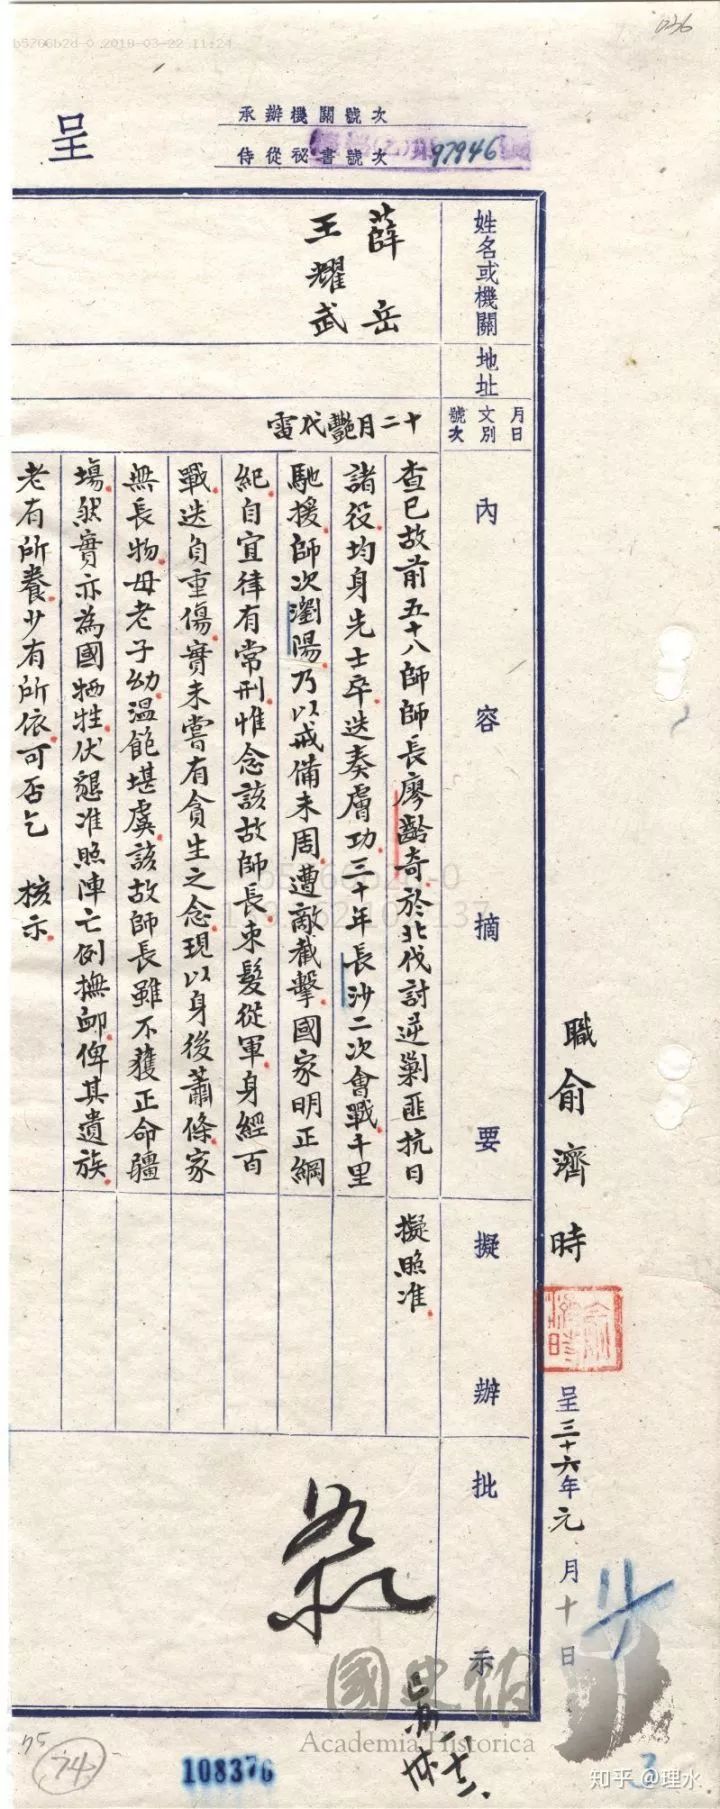 036
b5766b2d-0 2019-03-22 11:24
承辦機關號次
侍從祕書號次
97946
呈
職 俞濟時
呈 三十六年元月十日
姓名或機關
地址
月日
文別
號次
內容摘要
擬辦
批示
薛岳
王耀武
十二月艷代電
查已故前五十八師師長廖齡奇於北伐討逆剿匪抗日
諸役均身先士卒迭奏膚功三十年長沙二次會戰千里
馳援師次瀏陽乃以戒備未周遭敵截擊國家明正綱
紀自宜律有常刑惟念該故師長束髮從軍身經百
戰迭負重傷實未嘗有貪生之念現以身後蕭條家
無長物母老子幼溫飽堪虞該故師長雖不獲正命疆
場然實亦為國犧牲伏懇准照陣亡例撫卹俾其遺族
老有所養少有所依可否乞 核示
擬照准
國史館
Academia Historica
75
74
108376
3
知乎 @理水